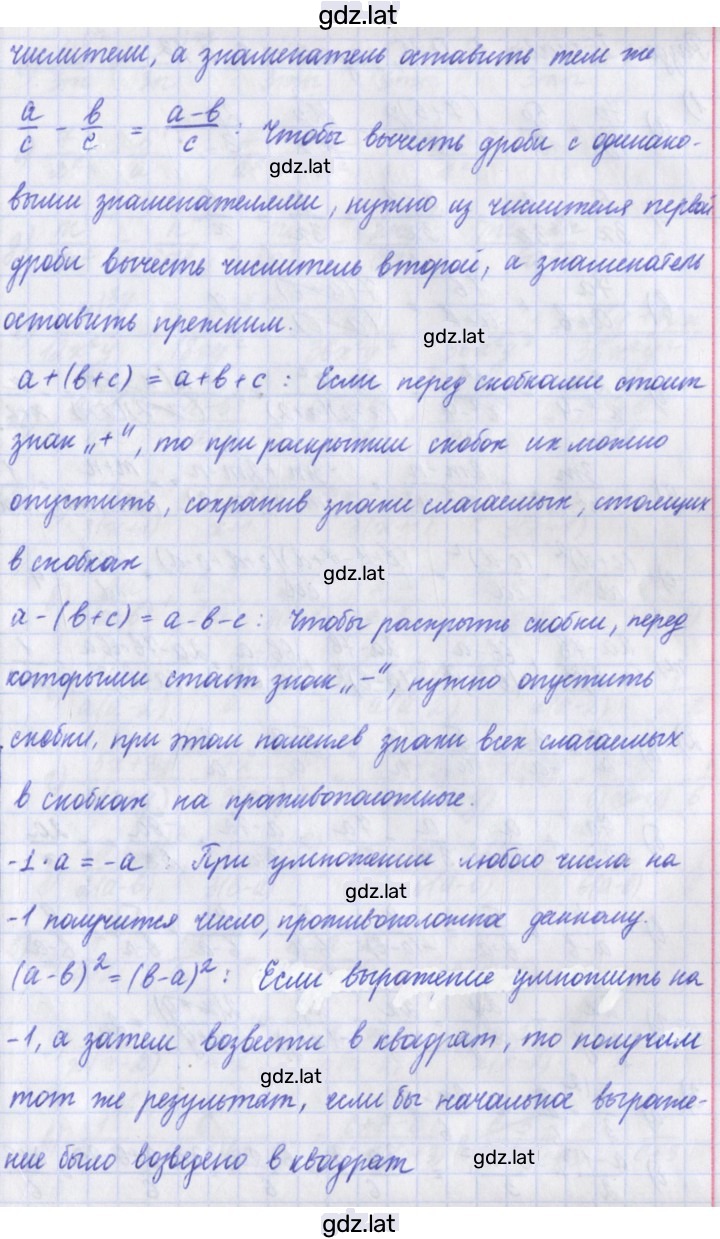 gdz.lat
числители, а знаменатель оставить тем же
a/c - b/c = (a-b)/c : Чтобы вычесть дроби с одинако-
gdz.lat
выми знаменателями, нужно из числителя первой
дроби вычесть числитель второй, а знаменатель
оставить прежним.
gdz.lat
a+(b+c) = a+b+c : Если перед скобками стоит
знак „+“, то при раскрытии скобок их можно
опустить, сохранив знаки слагаемых, стоящих
в скобках
gdz.lat
a-(b+c) = a-b-c : Чтобы раскрыть скобки, перед
которыми стоит знак „-“, нужно опустить
скобки, при этом поменяв знаки всех слагаемых
в скобках на противоположные.
-1·a = -a : При умножении любого числа на
gdz.lat
-1 получится число, противоположное данному.
(a-b)² = (b-a)² : Если выражение умножить на
-1, а затем возвести в квадрат, то получим
gdz.lat
тот же результат, если бы начальное выраже-
ние было возведено в квадрат
gdz.lat
gdz.lat